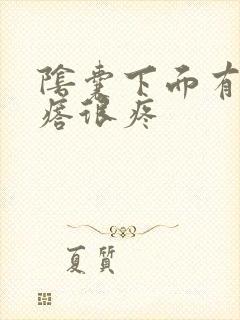 陰囊下面有
疙很疼
夏質